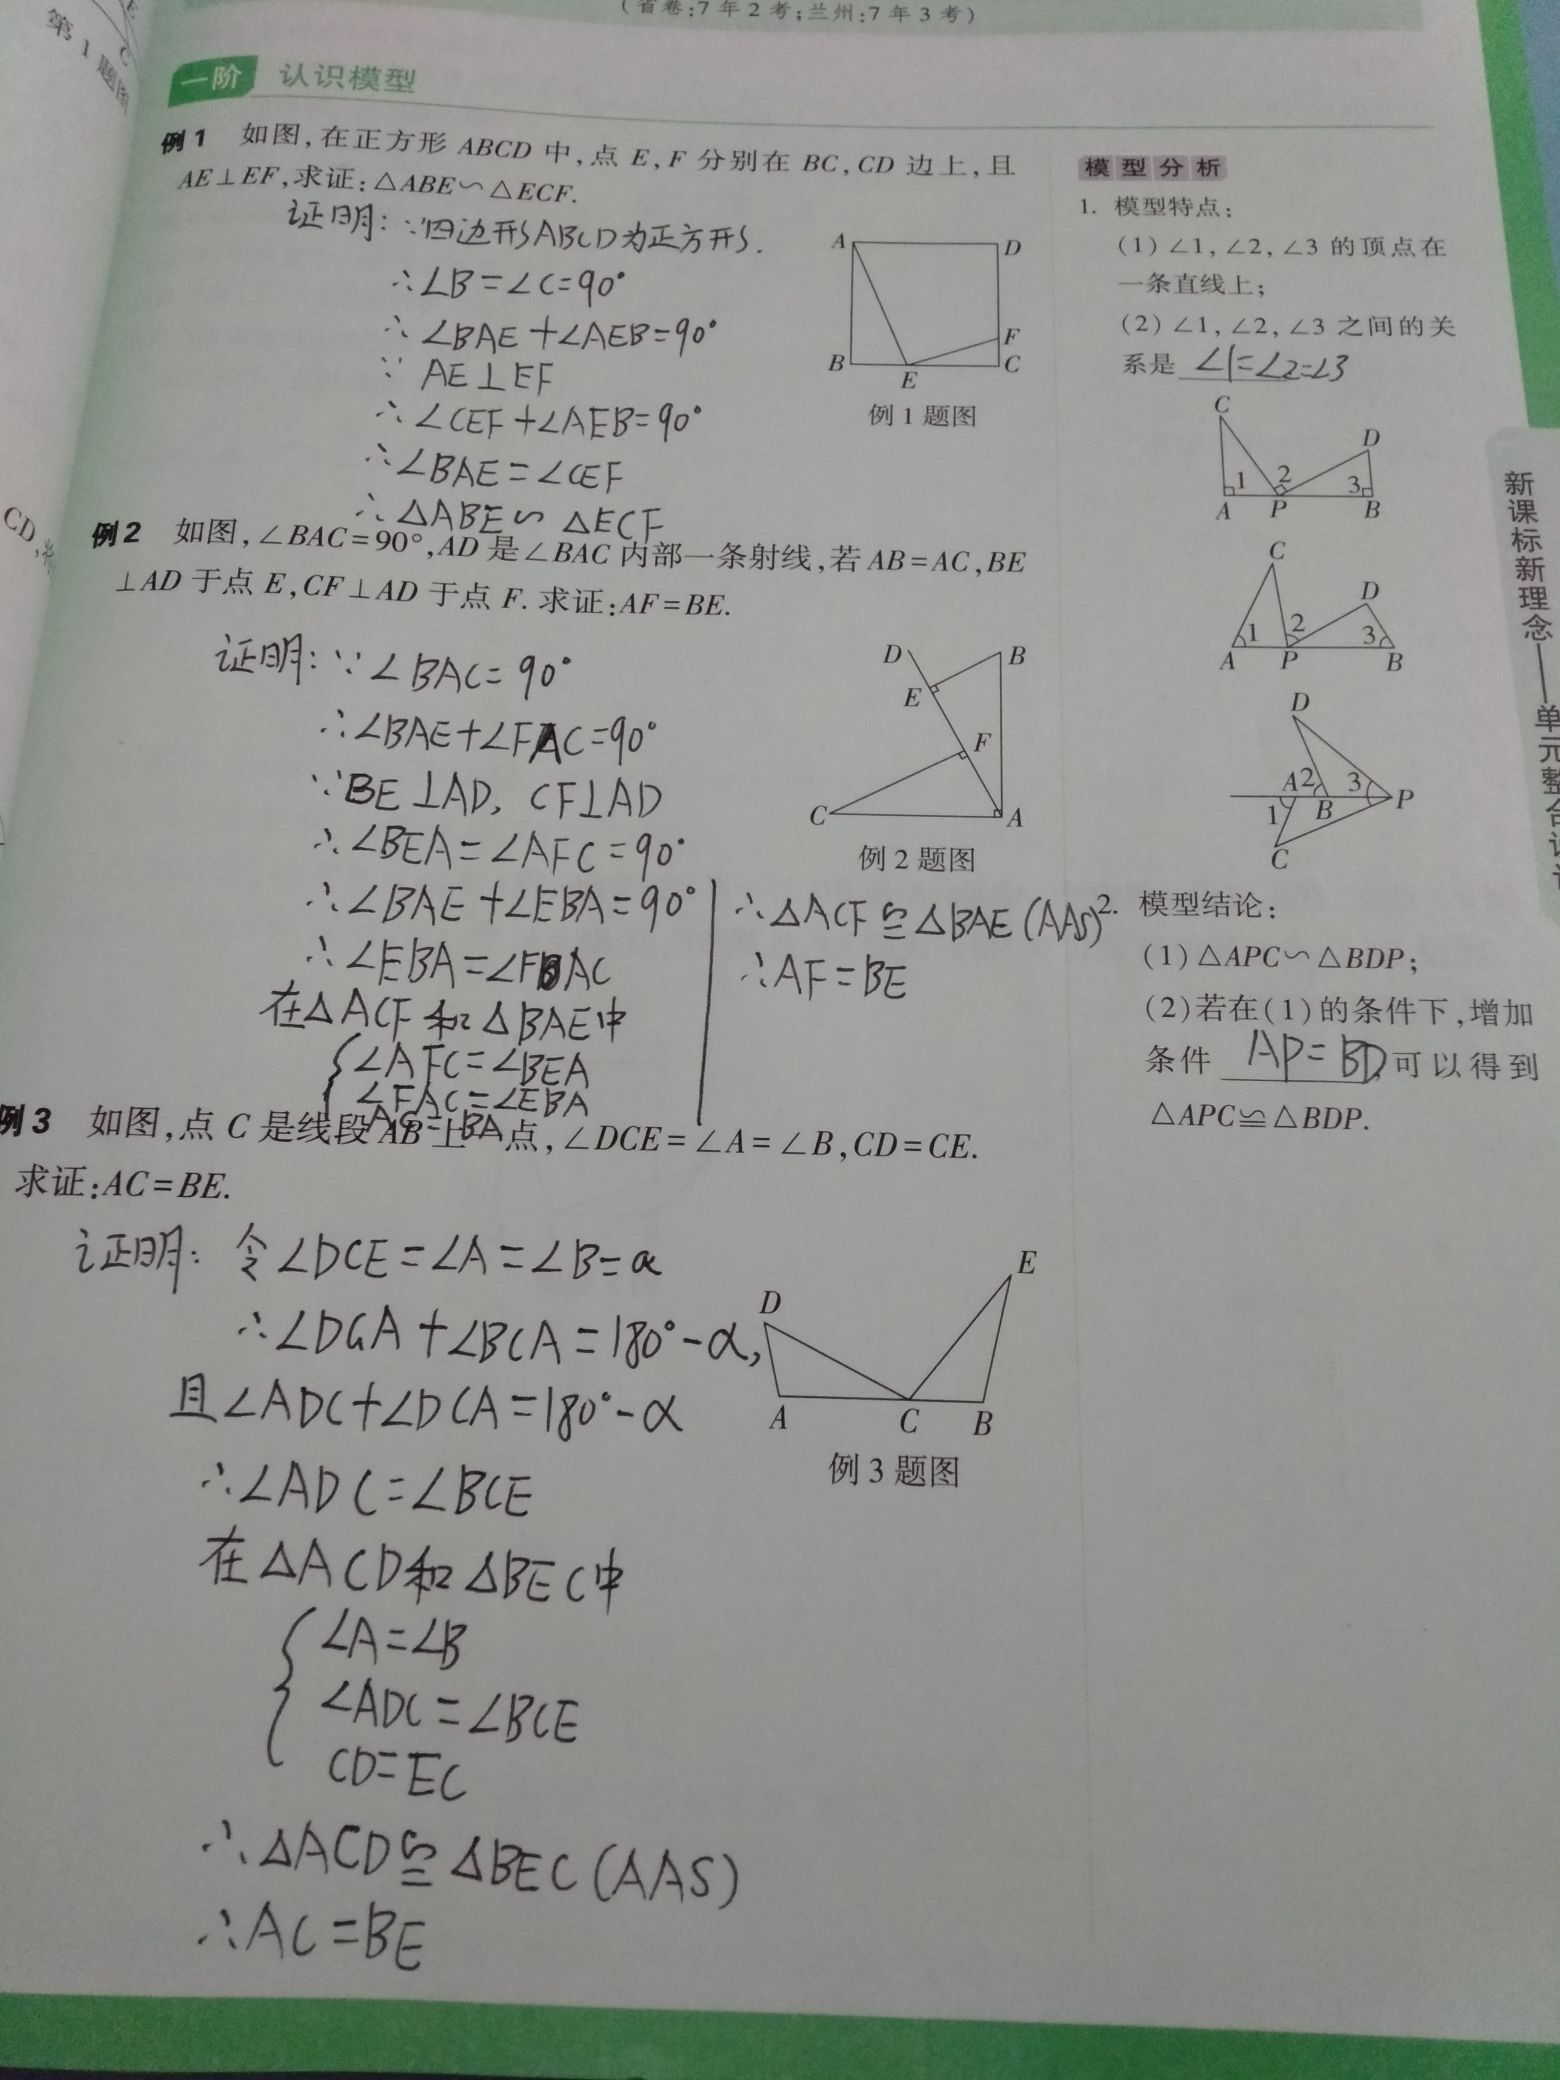 (省卷:7年2考;兰州:7年3考)
E
C
第1题图
CD,
一阶 认识模型
例1 如图,在正方形 ABCD 中,点 E,F 分别在 BC,CD 边上,且
AE⊥EF,求证:△ABE∽△ECF.
证明:∵四边形ABCD为正方形.
∴∠B=∠C=90°
∴∠BAE+∠AEB=90°
∵AE⊥EF
∴∠CEF+∠AEB=90°
∴∠BAE=∠CEF
∴△ABE∽△ECF
A
D
F
B
E
C
例1题图
例2 如图,∠BAC=90°,AD 是∠BAC 内部一条射线,若 AB=AC,BE
⊥AD 于点 E,CF⊥AD 于点 F. 求证:AF=BE.
证明:∵∠BAC=90°
∴∠BAE+∠FAC=90°
∵BE⊥AD, CF⊥AD
∴∠BEA=∠AFC=90°
∴∠BAE+∠EBA=90°
∴∠EBA=∠FAC
在△ACF和△BAE中
∠AFC=∠BEA
∠FAC=∠EBA
AC=BA
∴△ACF≌△BAE(AAS)
∴AF=BE
D
B
E
F
C
A
例2题图
例3 如图,点 C 是线段 AB 上一点,∠DCE=∠A=∠B,CD=CE.
求证:AC=BE.
证明:令∠DCE=∠A=∠B=α
∴∠DCA+∠BCA=180°-α,
且∠ADC+∠DCA=180°-α
∴∠ADC=∠BCE
在△ACD和△BEC中
∠A=∠B
∠ADC=∠BCE
CD=EC
∴△ACD≌△BEC(AAS)
∴AC=BE
D
E
A
C
B
例3题图
模型分析
1. 模型特点:
(1)∠1,∠2,∠3 的顶点在
一条直线上;
(2)∠1,∠2,∠3 之间的关
系是 ∠1=∠2=∠3
C
D
1
2
3
A
P
B
C
D
1
2
3
A
P
B
D
A
2
3
P
1
B
C
2. 模型结论:
(1)△APC∽△BDP;
(2)若在(1)的条件下,增加
条件 AP=BD,可以得到
△APC≌△BDP.
新课标新理念——单元整合